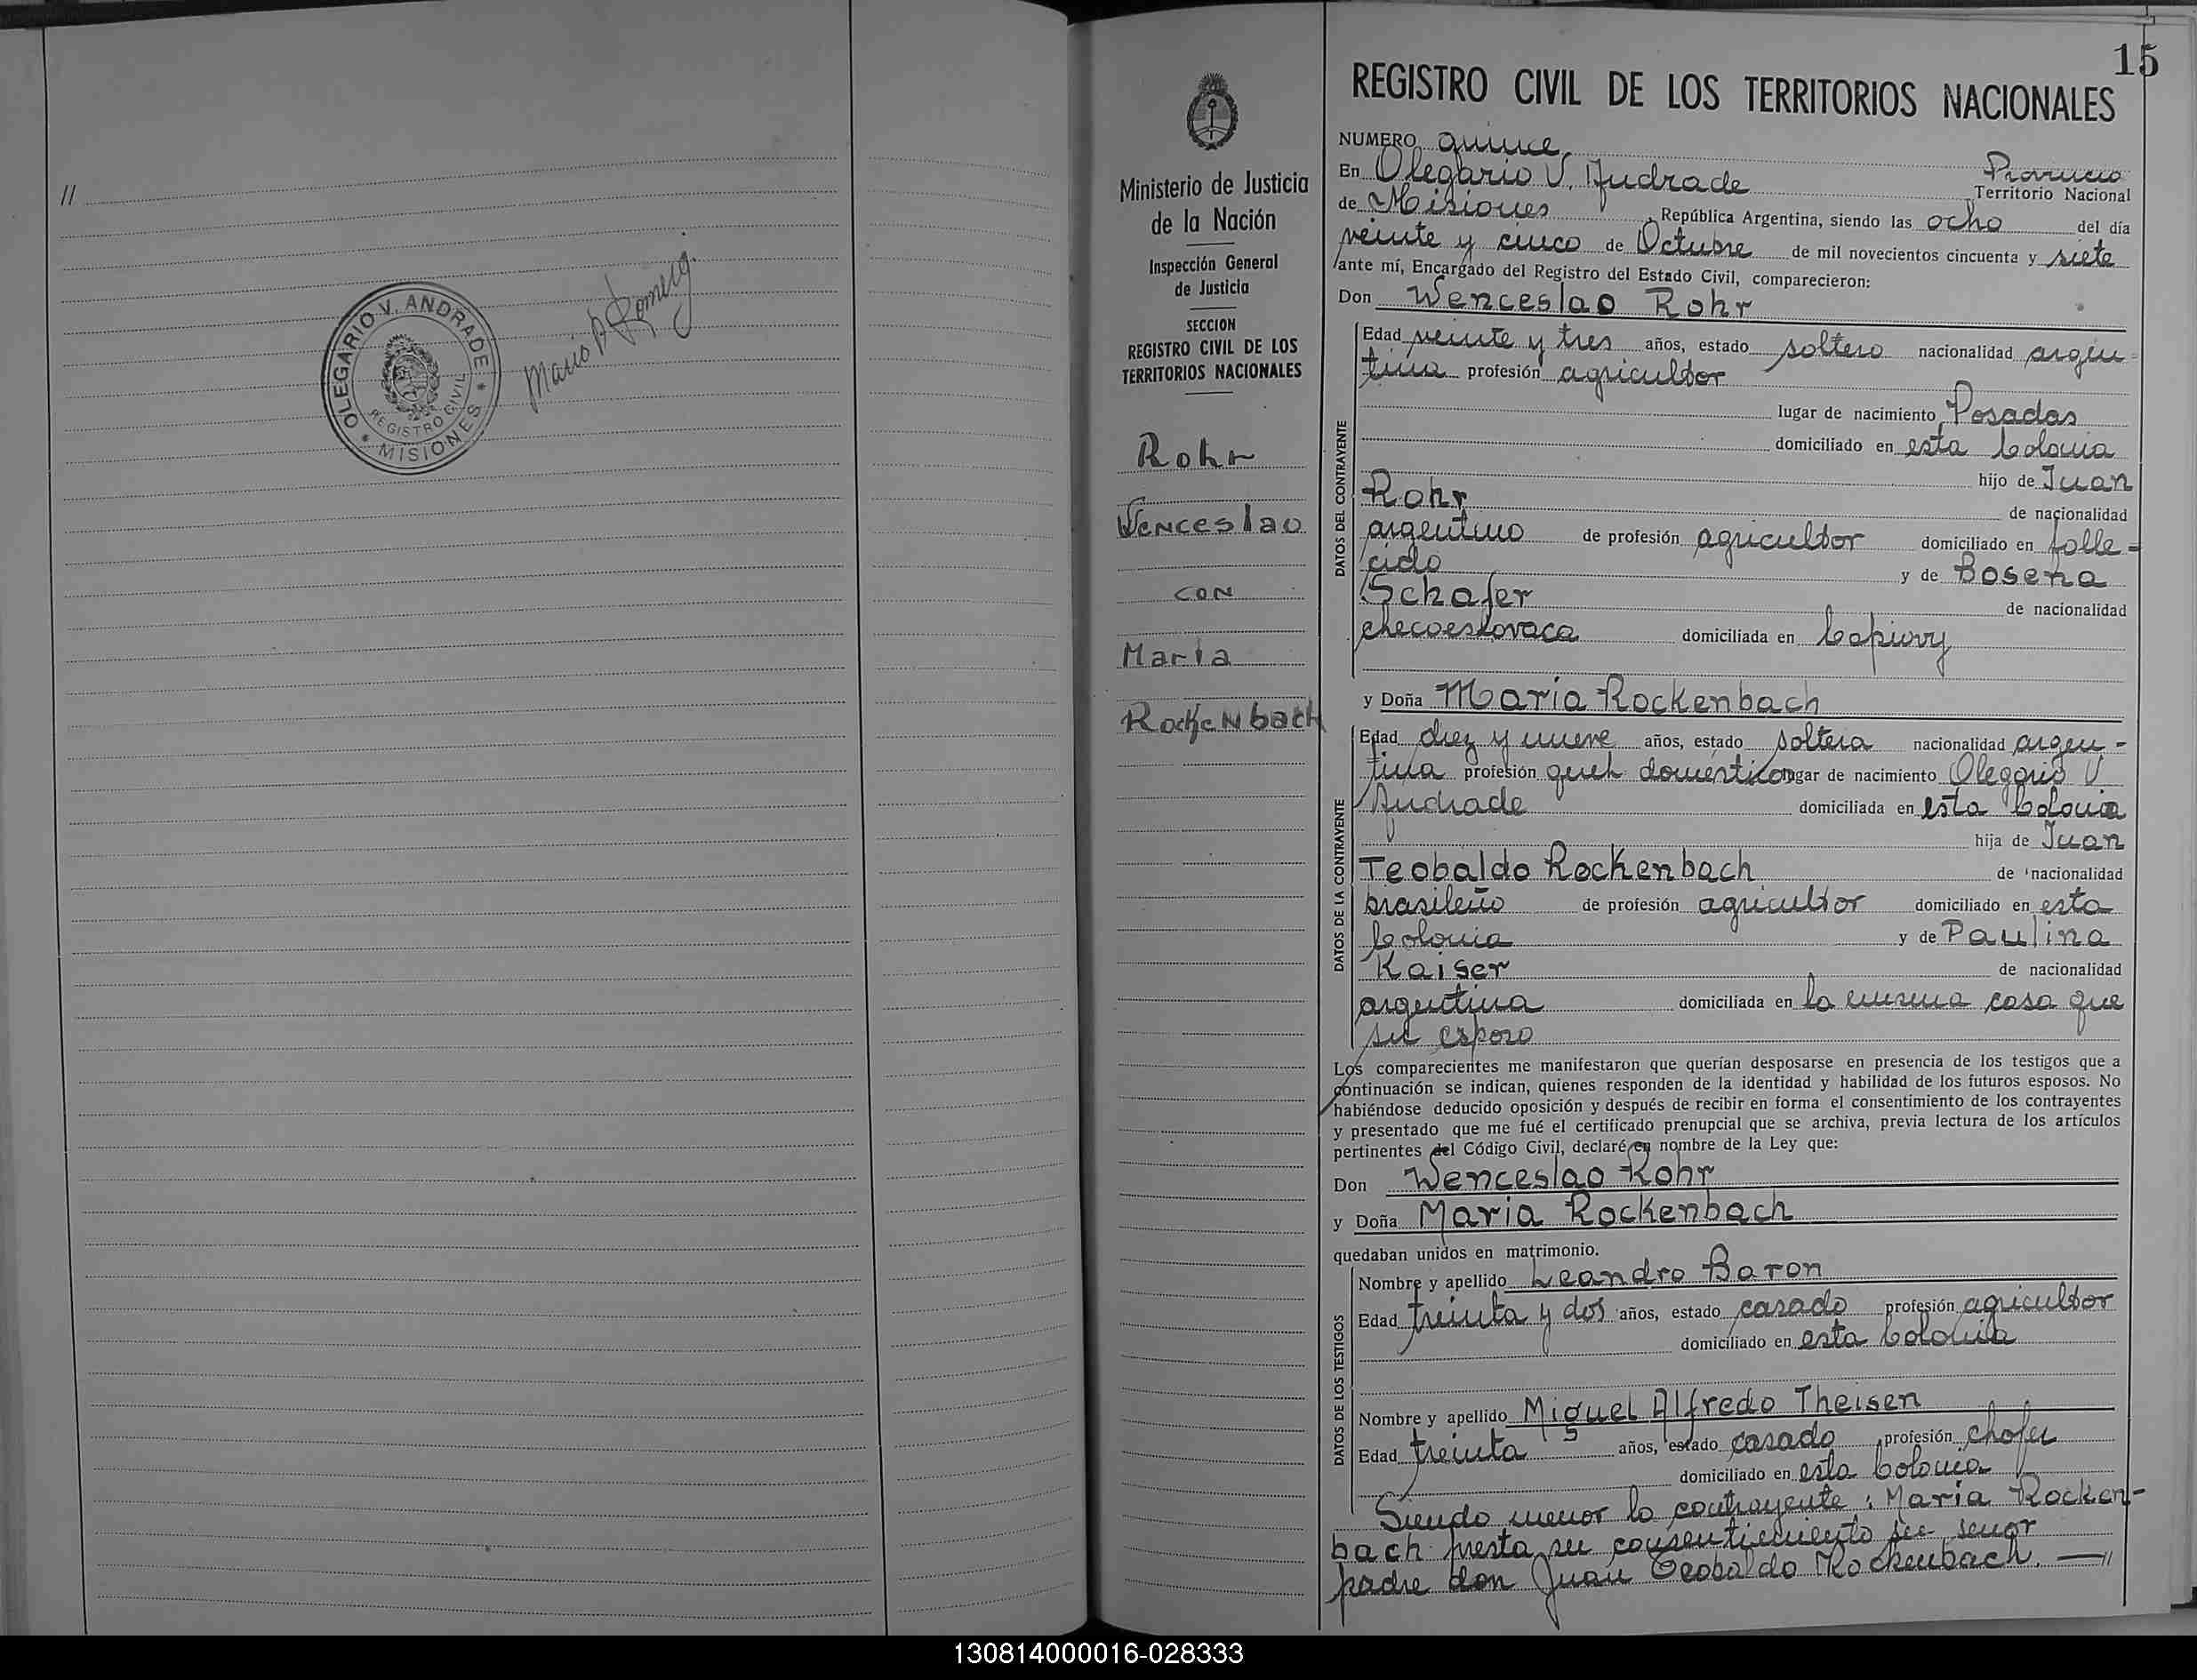 //
OLEGARIO V. ANDRADE
REGISTRO CIVIL
* MISIONES *
Ministerio de Justicia
de la Nación
Inspección General
de Justicia
SECCION
REGISTRO CIVIL DE LOS
TERRITORIOS NACIONALES
Rohr
Wenceslao
con
María
Rockenbach
15
REGISTRO CIVIL DE LOS TERRITORIOS NACIONALES
NUMERO quince
En Olegario V. Andrade Provincia
Territorio Nacional
de Misiones, República Argentina, siendo las ocho del día
veinte y cinco de Octubre de mil novecientos cincuenta y siete
ante mí, Encargado del Registro del Estado Civil, comparecieron:
Don Wenceslao Rohr
DATOS DEL CONTRAYENTE
Edad veinte y tres años, estado soltero nacionalidad argen-
tina profesión agricultor
lugar de nacimiento Posadas
domiciliado en esta Colonia
hijo de Juan
Rohr de nacionalidad
argentino de profesión agricultor domiciliado en falle-
cido y de Bosena
Schafer de nacionalidad
checoeslovaca domiciliada en Capiovy
y Doña María Rockenbach
DATOS DE LA CONTRAYENTE
Edad diez y nueve años, estado soltera nacionalidad argen-
tina profesión queh. domésticos lugar de nacimiento Olegario V
Andrade domiciliada en esta Colonia
hija de Juan
Teobaldo Rockenbach de nacionalidad
brasileño de profesión agricultor domiciliado en esta
Colonia y de Paulina
Kaiser de nacionalidad
argentina domiciliada en la misma casa que
su esposo
Los comparecientes me manifestaron que querían desposarse en presencia de los testigos que a
continuación se indican, quienes responden de la identidad y habilidad de los futuros esposos. No
habiéndose deducido oposición y después de recibir en forma el consentimiento de los contrayentes
y presentado que me fué el certificado prenupcial que se archiva, previa lectura de los artículos
pertinentes del Código Civil, declaré en nombre de la Ley que:
Don Wenceslao Rohr
y Doña María Rockenbach
quedaban unidos en matrimonio.
DATOS DE LOS TESTIGOS
Nombre y apellido Leandro Baron
Edad treinta y dos años, estado casado profesión agricultor
domiciliado en esta Colonia
Nombre y apellido Miguel Alfredo Theisen
Edad treinta años, estado casado profesión chofer
domiciliado en esta Colonia
Siendo menor la contrayente: María Rocken-
bach presta su consentimiento su señor
padre don Juan Teobaldo Rockenbach. —//
130814000016-028333